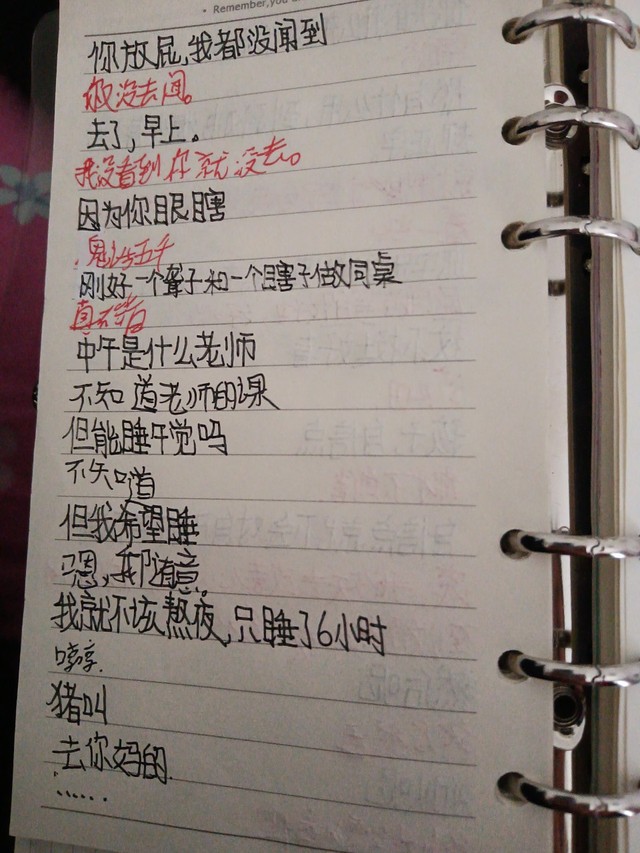 • Remember,you
你放屁,我都没闻到
你没去闻。
去了,早上。
我没看到你就没去。
因为你眼瞎
刚好一个聋子和一个瞎子做同桌
真不错
中午是什么老师
不知道老师的课
但能睡午觉吗
不知道
但我希望睡
嗯,我都随意。
我就不该熬夜,只睡了6小时
哼哼.
猪叫
去你妈的.
......